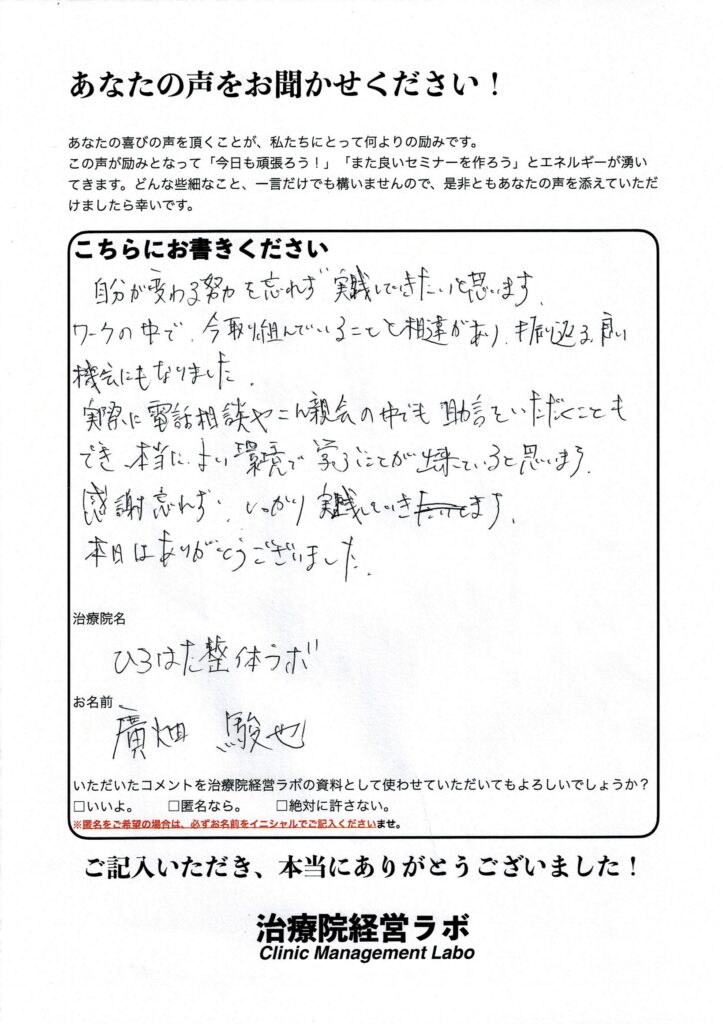 あなたの声をお聞かせください！
あなたの喜びの声を頂くことが、私たちにとって何よりの励みです。
この声が励みとなって「今日も頑張ろう！」「また良いセミナーを作ろう」とエネルギーが湧い
てきます。どんな些細なこと、一言だけでも構いませんので、是非ともあなたの声を添えていただ
けましたら幸いです。
こちらにお書きください
自分が変わる努力を忘れず実践していきたいと思います。
ワークの中で、今取り組んでいることと相違があり、振り込る良い
機会にもなりました。
実際に電話相談やこん親会の中でも助言をいただくことも
でき、本当によい環境で学ぶことが出来ていると思います。
感謝忘れず、しっかり実践していきます。
本日はありがとうございました。
治療院名
ひろはた整体ラボ
お名前
廣畑 駿也
いただいたコメントを治療院経営ラボの資料として使わせていただいてもよろしいでしょうか？
□いいよ。 □匿名なら。 □絶対に許さない。
※匿名をご希望の場合は、必ずお名前をイニシャルでご記入くださいませ。
ご記入いただき、本当にありがとうございました！
治療院経営ラボ
Clinic Management Labo